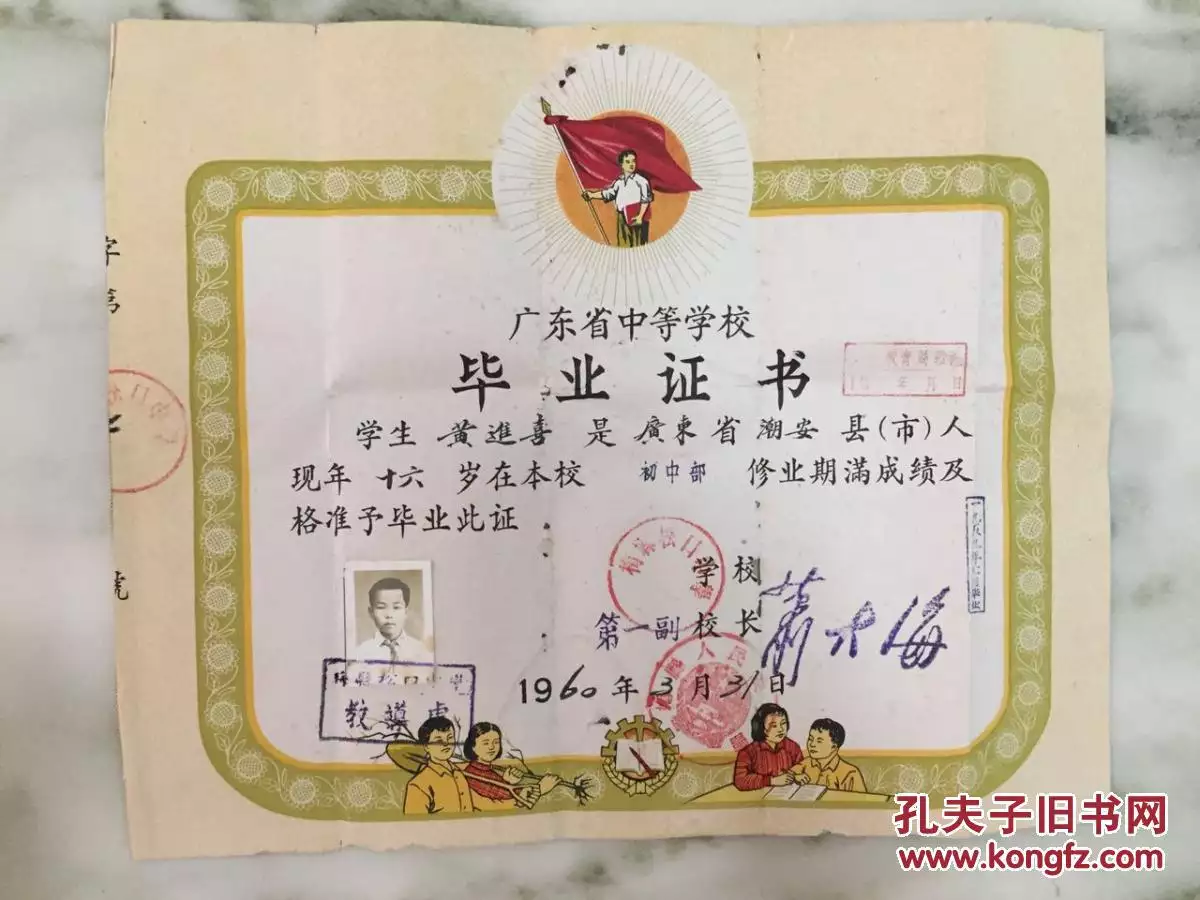 广东省中等学校
毕业证书
学生 黄進喜 是 廣東省 潮安 县(市)人
现年 十六 岁在本校 初中部 修业期满成绩及
格准予毕业此证
学校
第一副校长
1960年3月31日
字第
號
松口
教導處
孔夫子旧书网
www.kongfz.com